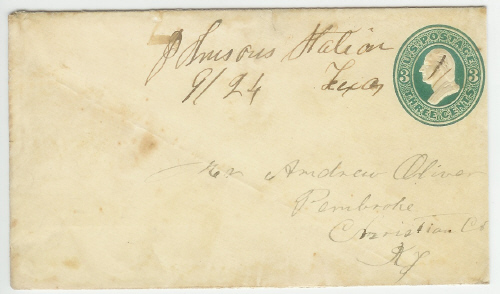 Johnsons Station
9/24 Texas
U.S. POSTAGE
3 3
THREE CENTS
Mr Andrew Oliver
Pembroke
Christian Co
Ky